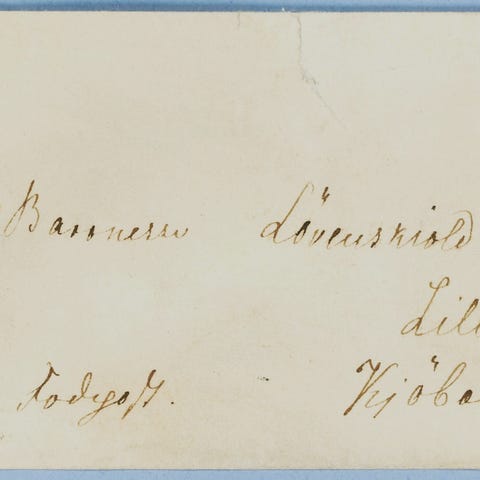 Baronesse Lövenskiold
Lil
Fodpost. Kjöb